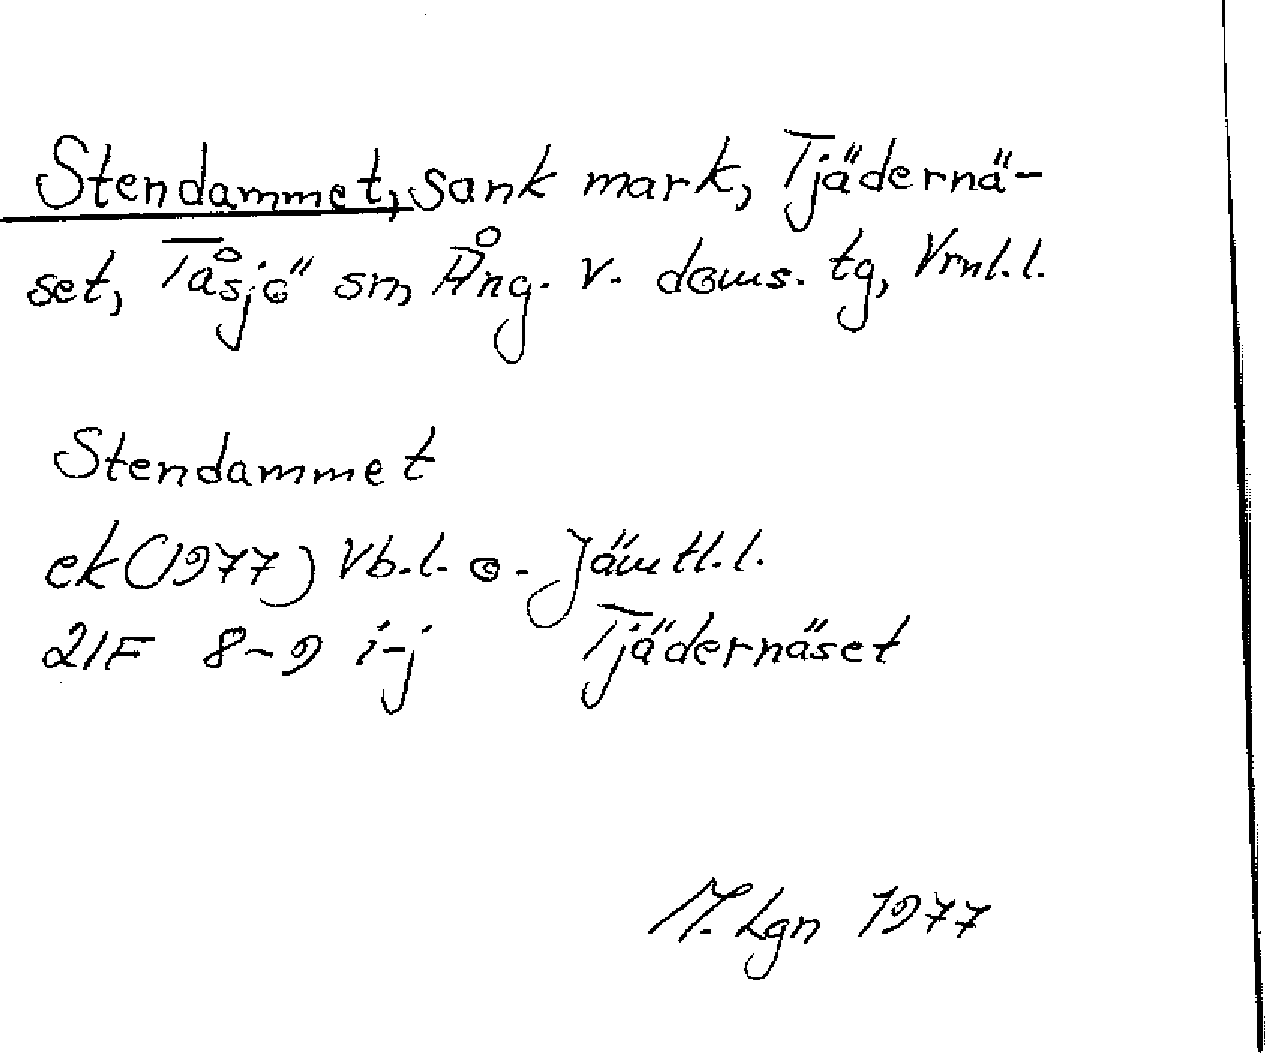 Stendammet, sank mark, Tjädernä-
set, Tåsjö sm Ång. v. doms. tg, Vrnl.l.
Stendammet
ek (1977) Vb.l. o. Jämtl.l.
21F 8-9 i-j Tjädernäset
M. Lgn 1977